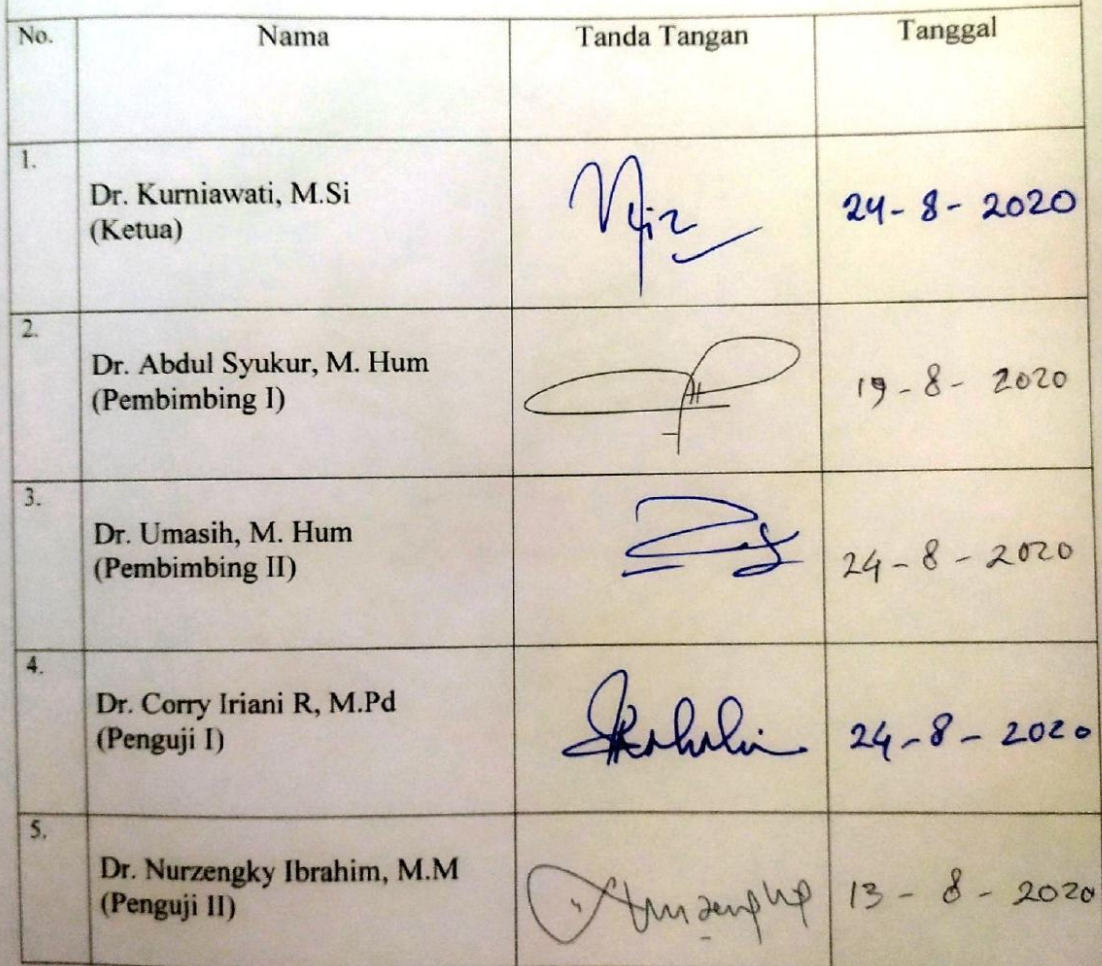 No. Nama Tanda Tangan Tanggal
1.
Dr. Kurniawati, M.Si
(Ketua)
24-8-2020
2.
Dr. Abdul Syukur, M. Hum
(Pembimbing I)
19-8-2020
3.
Dr. Umasih, M. Hum
(Pembimbing II)
24-8-2020
4.
Dr. Corry Iriani R, M.Pd
(Penguji I)
24-8-2020
5.
Dr. Nurzengky Ibrahim, M.M
(Penguji II)
13-8-2020